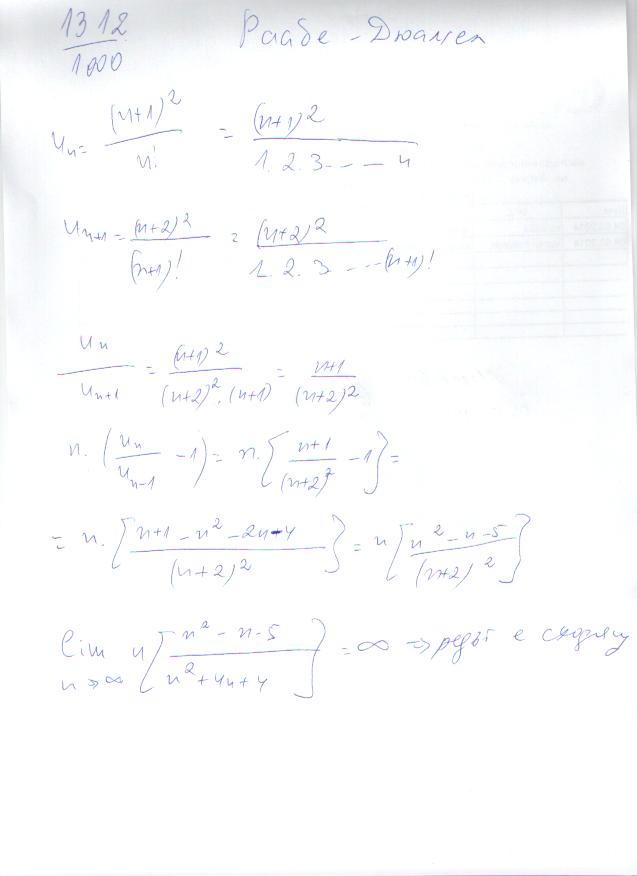 1312 Раабе - Дюамел
1000
u_n = (n+1)^2 / n! = (n+1)^2 / 1.2.3---- n
u_{n+1} = (n+2)^2 / (n+1)! = (n+2)^2 / 1.2.3 ---- (n+1)!
u_n / u_{n+1} = (n+1)^2 / (n+2)^2.(n+1) = n+1 / (n+2)^2
n.(u_n / u_{n-1} -1) = n.[n+1 / (n+2)^2 -1] =
= n.[n+1-n^2-2n-4 / (n+2)^2] = n[n^2-n-5 / (n+2)^2]
lim n→∞ n[n^2-n-5 / n^2+4n+4] = ∞ ⇒ редът е сходящ